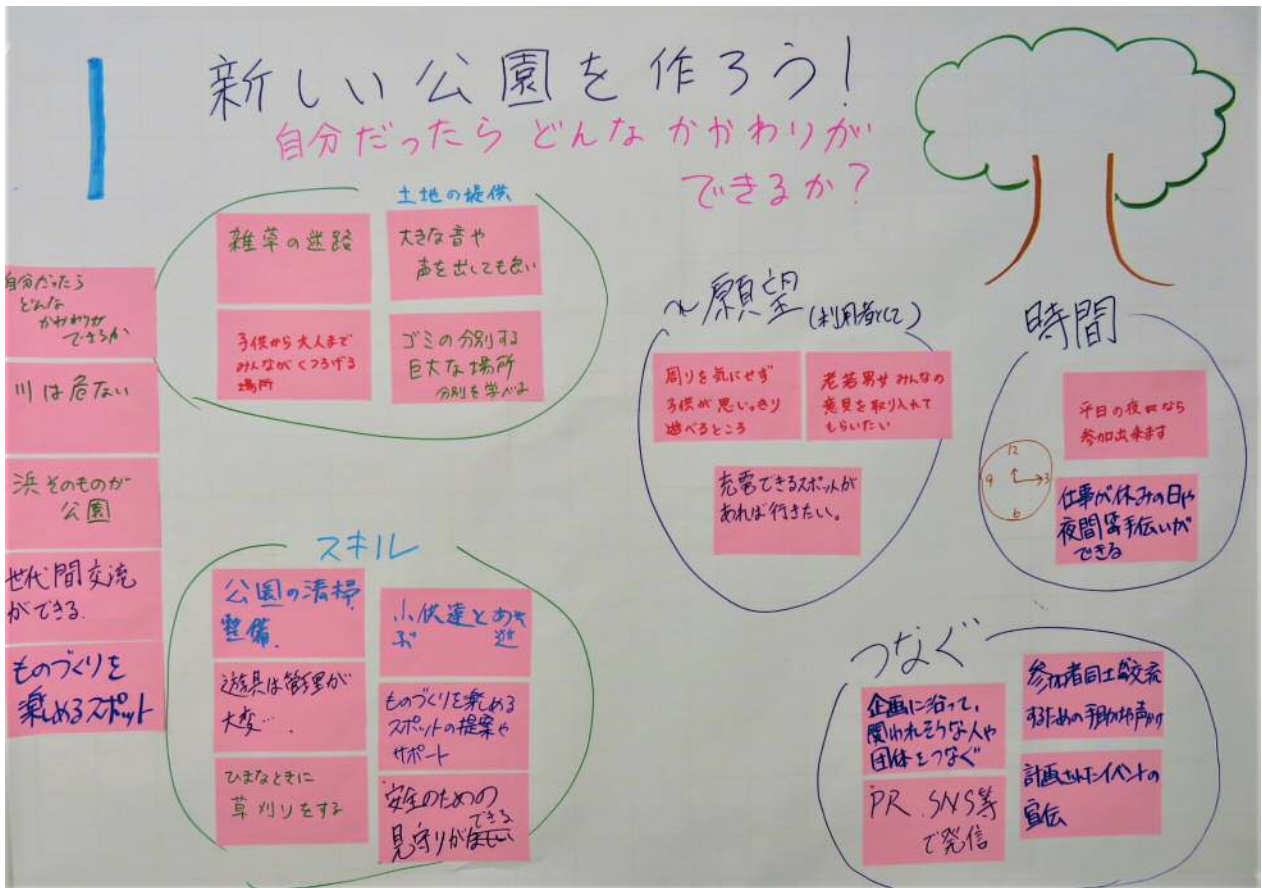 新しい公園を作ろう!
自分だったら どんな かかわりが
できるか?
自分だったら
どんな
かかわりが
できるか
川は危ない
浜そのものが
公園
世代間交流
ができる.
ものづくりを
楽しめるスポット
土地の提供
雑草の迷路
大きな音や
声を出しても良い
子供から大人まで
みんながくつろげる
場所
ゴミの分別する
巨大な場所
分別を学べる
スキル
公園の清掃
整備.
小供達と
遊具は管理が
大変…
ものづくりを楽しめる
スポットの提案や
サポート
ひまなときに
草刈りをする
安全のための
できる
見守りが
~願望(利用者として)
周りを気にせず
子供が思いっきり
遊べるところ
老若男女みんなの
意見を取り入れて
もらいたい
充電できるスポットが
あれば行きたい。
時間
平日の夜なら
参加出来ます
12
9
3
6
仕事が休みの日や
夜間等手伝いが
できる
つなぐ
企画に沿って、
関われそうな人や
団体をつなぐ
参加者同士が交流
するための手助けや声かけ
PR.SNS等
で発信
計画されたイベントの
宣伝